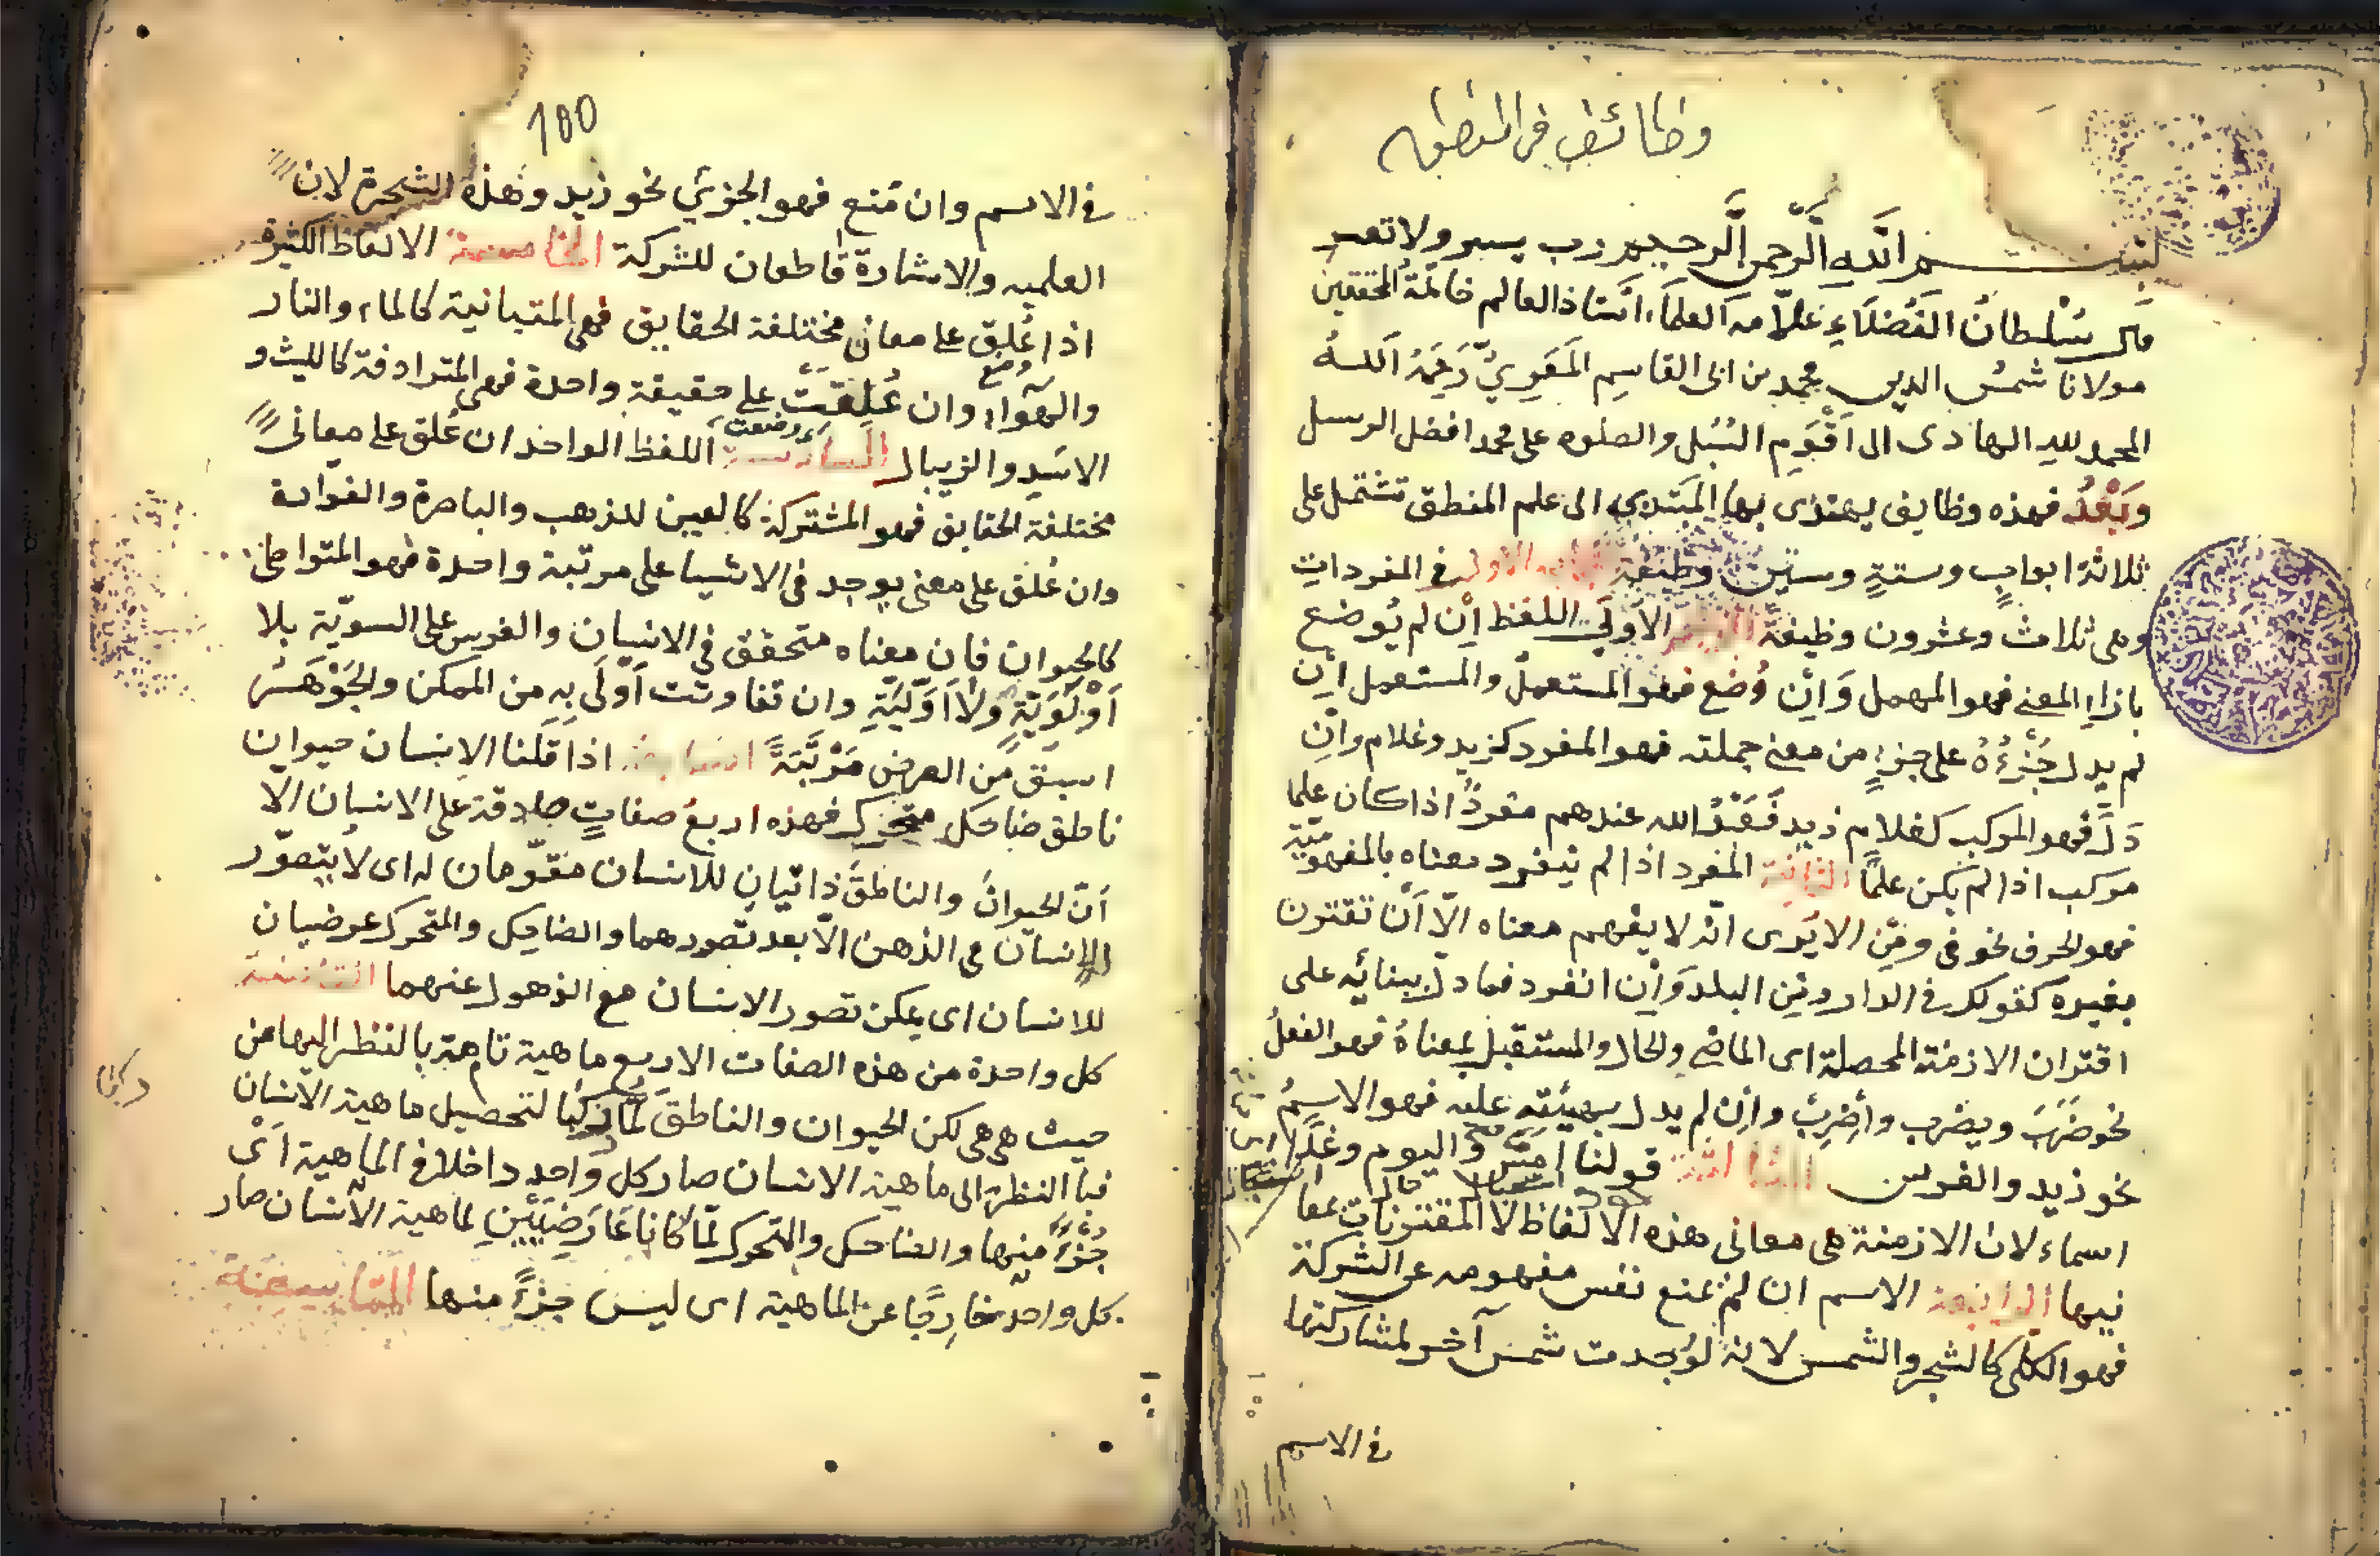 وظائف في المنطق
بسم الله الرحمن الرحيم رب يسر ولا تعسر
قال سُلطانُ الفُضَلَاءِ علّامة العلماء استاذ العالم خاتمة المحققين
مولانا شمسُ الدين محمد بن ابى القاسِمِ رَحِمَهُ اللهُ
الحمد لله الهادى الى اَقْوَمِ السُبُل والصلوة على محمد افضل الرسل
وبَعْدُ فهذه وظايف يهتدى بها المبتدى الى علم المنطق تشتمل على
ثلاثة ابوابٍ وستةٍ وستين وظيفة الباب الاول في المفرداتِ
وهى ثلاث وعشرون وظيفةً الاولى اللفظ اِن لم يُوضع
بازاءِ المعنى فهو المهمل وَاِن وُضع فهو المستعمل والمستعمل اِن
لم يدل جُزْءُهُ على جزءٍ من معنى جملته فهو المفرد كزيد وغلام واِن
دَلَّ فهو المركب كغلام زيد فَعَبْدُ الله عندهم مفردٌ اذا كان علما
مركب اذا لم يكن علمًا الثانية المفرد اذا لم ينفرد معناه بالمفهومية
فهو الحرف نحو في ومِن الا يَرى انّه لا يفهم معناه الّا اَنْ تقترن
بغيره كقولك في الدار ومِن البلد وَاِن انفرد فما دلّ ببنائه على
اقتران الازمنة المحصلة اى الماضي والحال والمستقبل بمعناهُ فهو الفعلُ
نحو ضَرَبَ ويضرب واضرِبْ واِن لم يدل بهيئتِهِ عليه فهو الاسمُ
نحو زيد والفرس الثالثة قولنا امسِ واليوم وغدًا
اسماء لان الازمنة هى معانى هذه الالفاظ لا المقترنات بمعا
نيها الرابعة الاسم ان لم يمنع نفس مفهومه عن الشركة
فهو الكلى كالشجر والشمس لانه لو وُجدت شمس آخر لمشاركتها
في الاسم
100
في الاسم وان مَنع فهو الجزئي نحو زيد وهذه الشجرة لان
العلميه والاشارة قاطعان للشركة الخامسة الالفاظ الكثيرة
اذا عُلِق على معانٍ مختلفة الحقايق فهى المتباينة كالماء والنار
والهواء وان عُلِقَتْ على حقيقة واحدة فهى المترادفة كالليث و
وضع
الاسَدِ والزيبال السادسة اللفظ الواحد ان عُلق على معانى
وضعت
مختلفة الحقايق فهو المشتركة كالعين للذهب والباصرة والفوّارة
وان عُلق على معنى يوجد في الاشيا على مرتبة واحدة فهو المتواطى
كالحيوان فان معناه متحقق في الانسان والفرس على السويّة بلا
اَوْلَوِيّةٍ ولا اَوَّلِيّةٍ وان تفاوتت اَوْلَى بِهِ من الممكن والجَوْهَرُ
اسبق من العرض مَرْتَبَةً السابعة اذا قلنا الانسان حيوان
ناطق ضاحك متحرك فهذه اربعُ صفاتٍ صادقة على الانسان الّا
اَنّ الحيوانَ والناطقَ ذاتيانِ للانسان مقوّمان له اى لا يتصوّر
الانسان فى الذهن الّا بعد تصورهما والضاحك والمتحرك عرضيان
للانسان اى يمكن تصور الانسان مع الذهول عنهما الثامنة
كل واحدة من هذه الصفات الاربع ماهية تامة بالنظر اليها من
حيث هى هى لكن الحيوان والناطقَ لمّا رُكِّبا لتحصيل ماهية الانسان
ركبا
فبا النظرة الى ماهية الانسان صار كل واحد داخلا في الماهية اَىْ
جُزْءً منها والضاحك والمتحرك لمّا كانا عَارَضِيَيْنِ لماهية الانسان صار
كل واحد خارِجًا عن الماهية اى ليس جزءً منها التاسعة